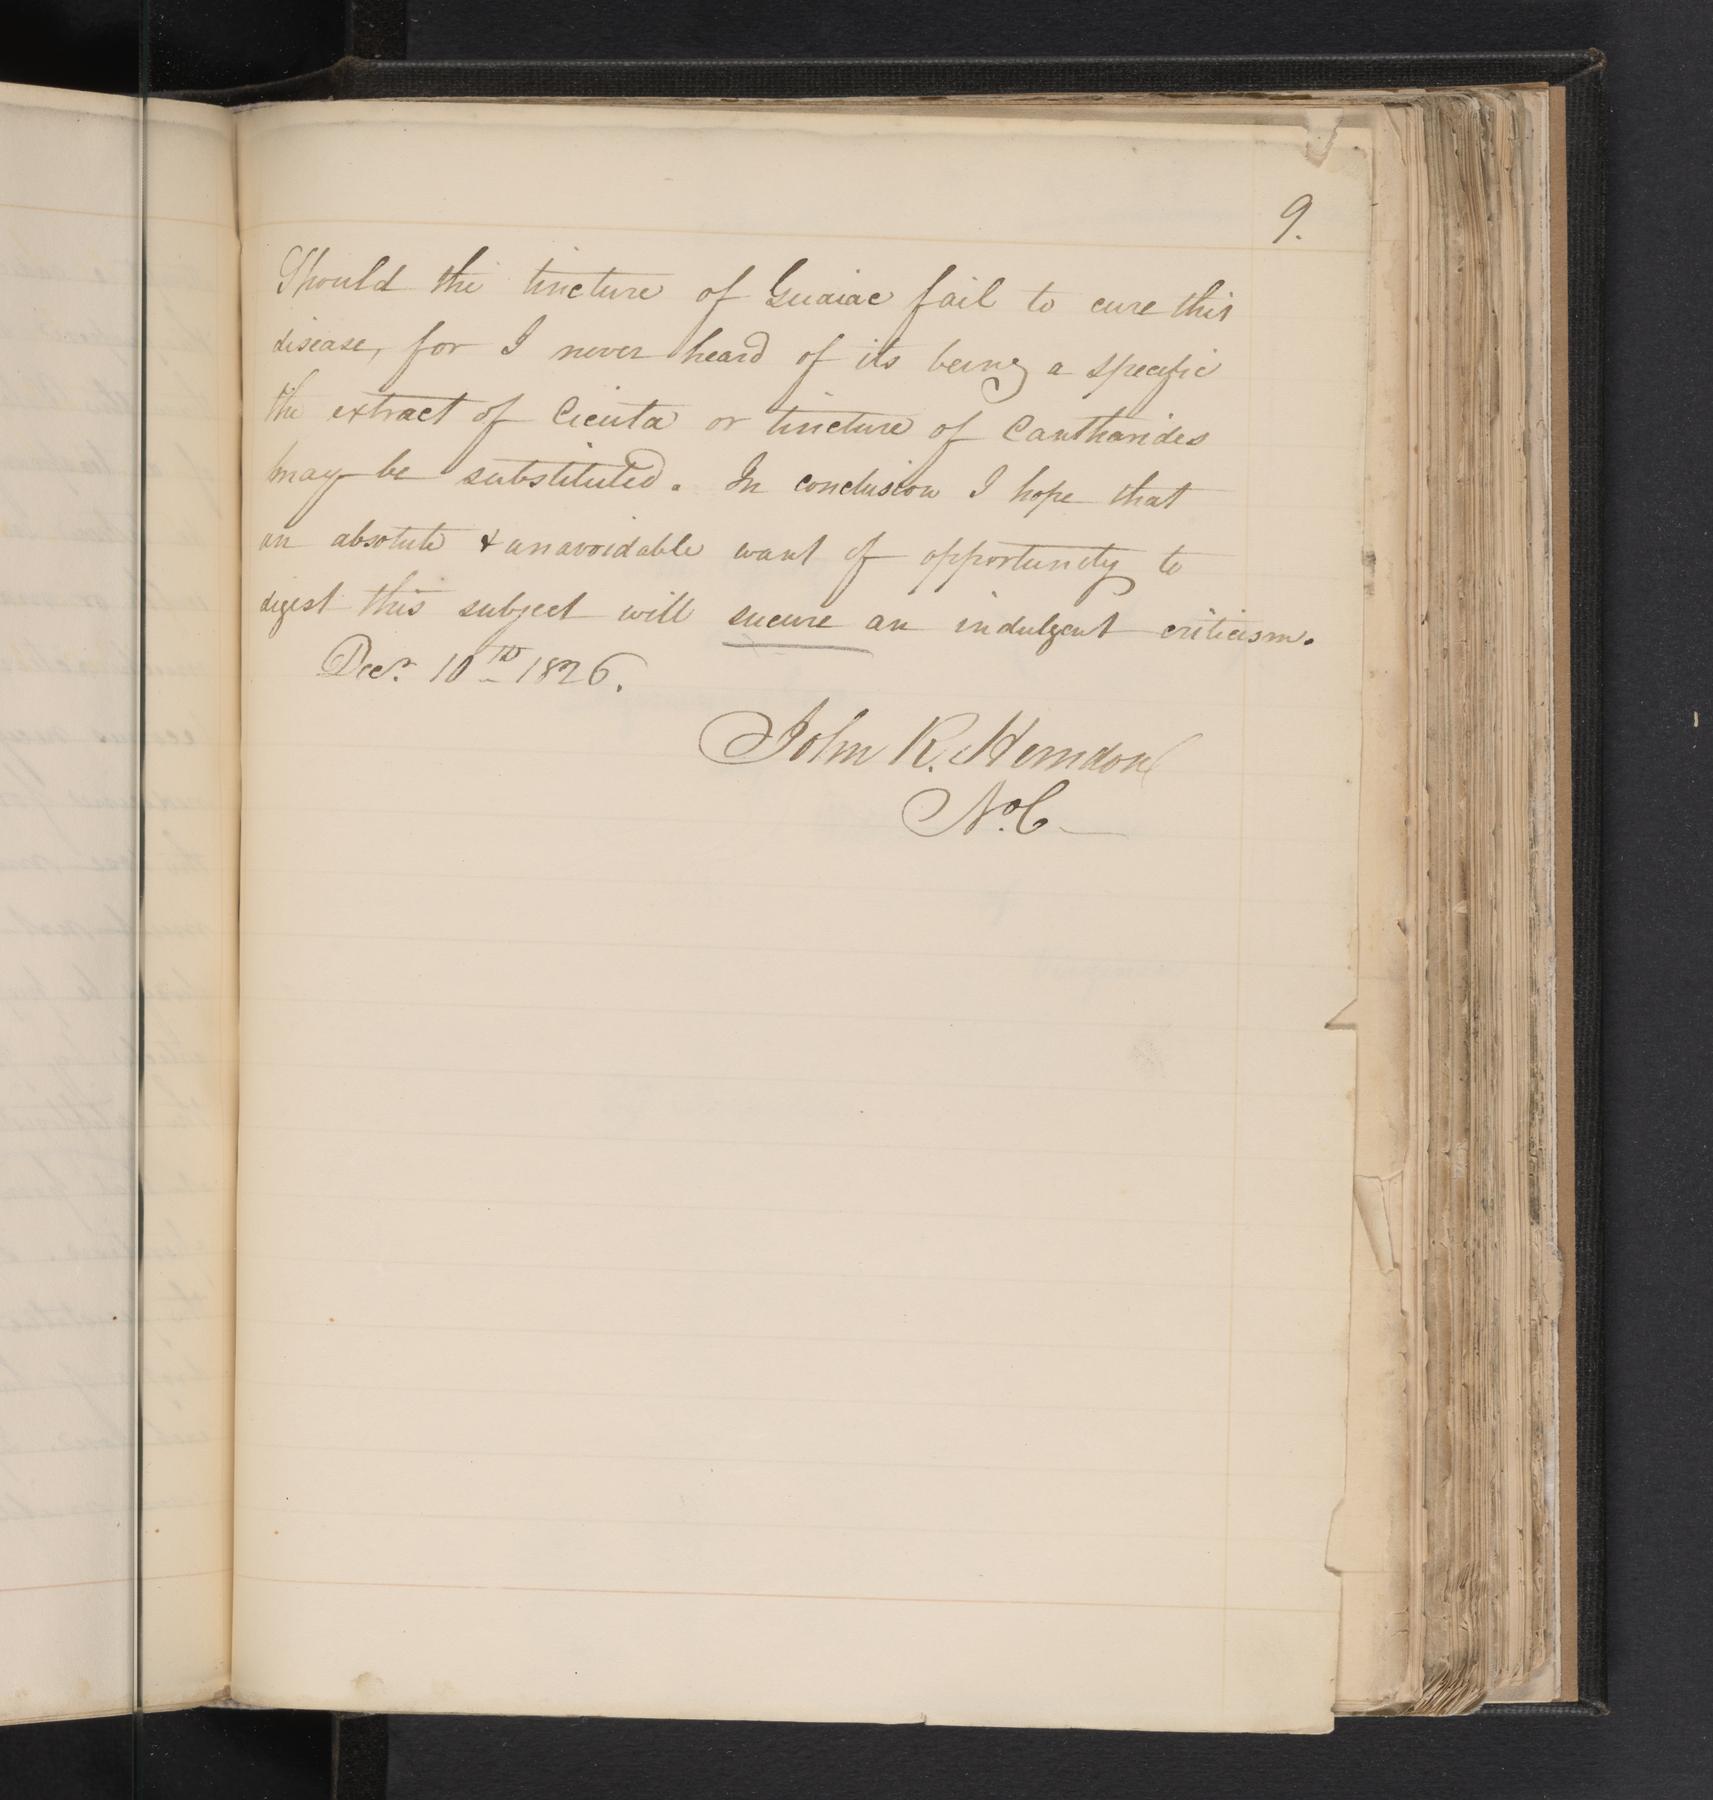 9.
Should the tincture of Guaiac fail to cure this
disease, for I never heard of its being a specific
the extract of Cicuta or tincture of Cantharides
may be substituted. In conclusion I hope that
an absolute & unavoidable want of opportunity to
digest this subject will sucure an indulgent criticism.
Decr. 10th 1826.
John R. Herndon
No. C